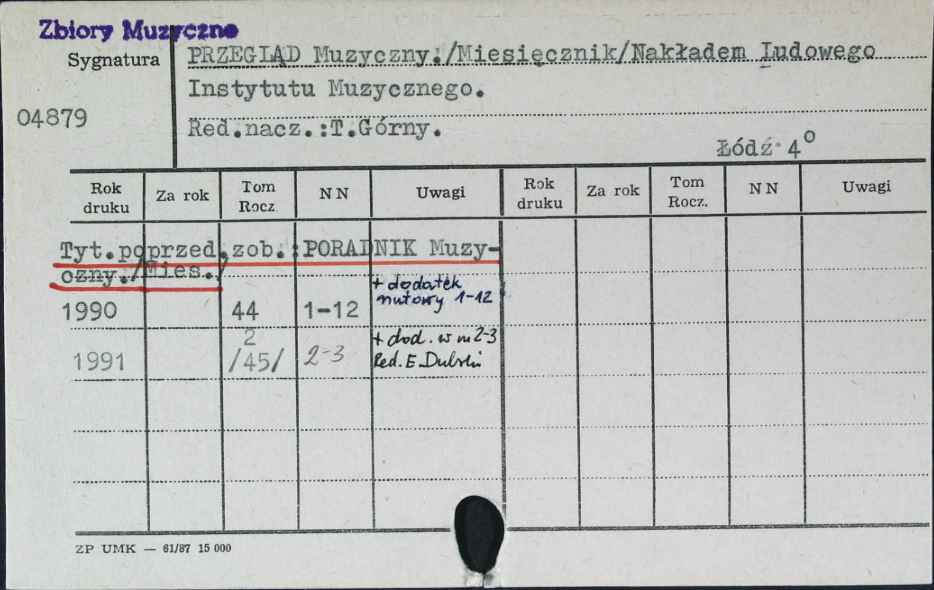 Zbiory Muzyczne
Sygnatura
04879
PRZEGLĄD Muzyczny./Miesięcznik/Nakładem Ludowego
Instytutu Muzycznego.
Red.nacz.:T.Górny.
Łódź 4°
Rok druku Za rok Tom Rocz. N N Uwagi Rok druku Za rok Tom Rocz. N N Uwagi
Tyt.poprzed.zob.:PORADNIK Muzy-
czny./Mies./
1990 44 1-12 + dodatek nutowy 1-12
1991 2 /45/ 2-3 + dod. w nr 2-3
Red. E.
ZP UMK — 61/87 15 000